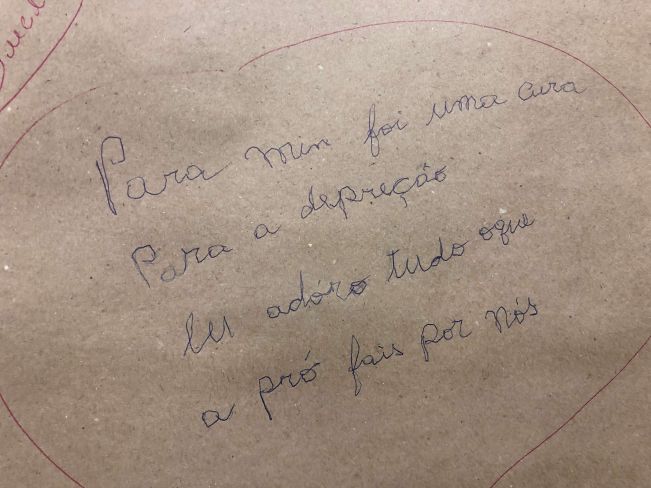 Para min foi uma cura
Para a depreção
eu adóro tudo oque
a pró fais por nós